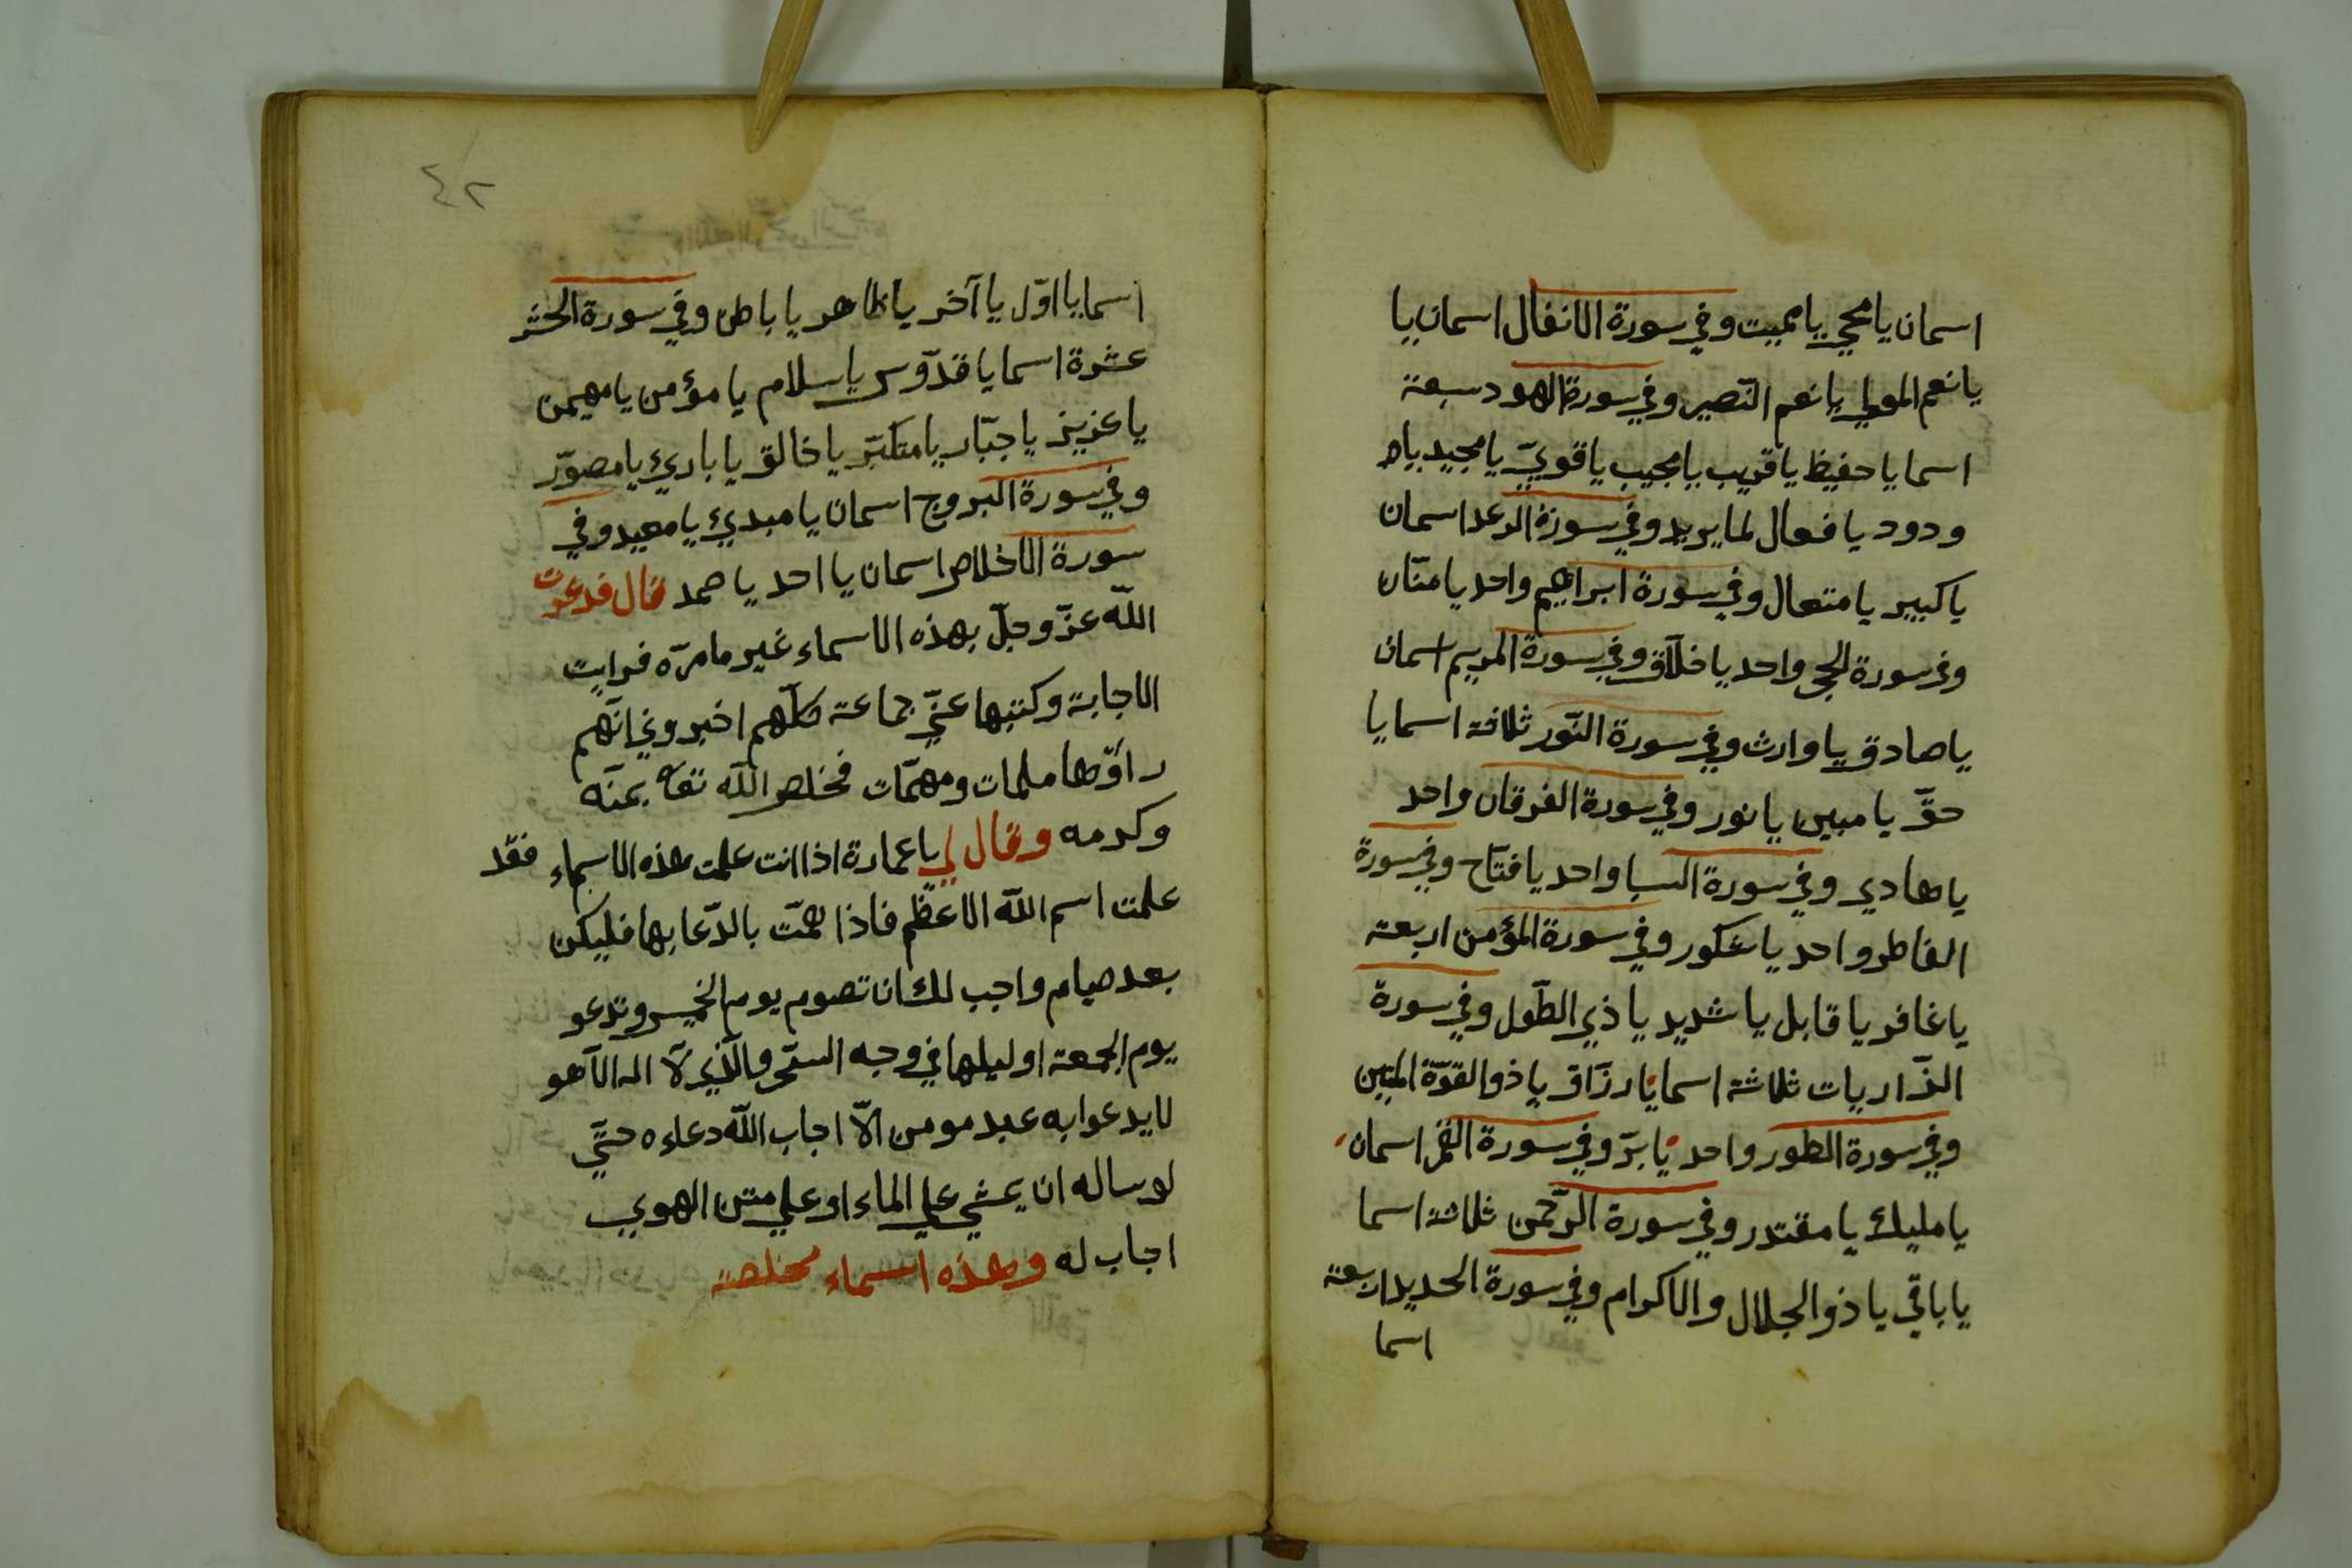 اسمان يا محيي يا مميت وفي سورة الانفال اسمان يا
يا نعم المولي يا نعم النّصير وفي سورة الهود سبعة
اسما يا حفيظ يا قريب يا مجيب يا قويّ يا مجيد يا
ودود يا فعال لما يريد وفي سورة الرعد اسمان
يا كبير يا متعال وفي سورة ابراهيم واحد يا منّان
وفي سورة الحجر واحد يا خلّاق وفي سورة المريم اسمان
يا صادق يا وارث وفي سورة النّور ثلاثة اسما يا
حقّ يا مبين يا نور وفي سورة الفرقان واحد
يا هادي وفي سورة السبا واحد يا فتّاح وفي سورة
الفاطر واحد يا شكور وفي سورة المؤمن اربعة
يا غافر يا قابل يا شديد يا ذي الطّول وفي سورة
الذّاريات ثلاثة اسما يا رزّاق يا ذو القوّة المتين
وفي سورة الطور واحد يا برّ وفي سورة القمر اسمان
يا مليك يا مقتدر وفي سورة الرّحمن ثلاثة اسما
يا باقي يا ذو الجلال والاكرام وفي سورة الحديد اربعة
اسما
٤٢
اسما يا اوّل يا آخر يا ظاهر يا باطن وفي سورة الحشر
عشرة اسما يا قدّوس يا سلام يا مؤمن يا مهيمن
يا عزيز يا جبّار يا متكبّر يا خالق يا بارئ يا مصوّر
وفي سورة البروج اسمان يا مبدئ يا معيد وفي
سورة الاخلاص اسمان يا احد يا صمد قال فدعوت
اللّه عزّ وجلّ بهذه الاسماء غير ما مرّه فرايت
الاجابة وكتبها عنّي جماعة كلّهم اخبروني انّهم
دعوا بها ملمات ومهمّات فخلص اللّه بمنّه
وكرمه وقال لي يا عمارة اذا انت علمت هذه الاسماء فقد
علمت اسم اللّه الاعظم فاذا هممّت بالدّعا بها فليكن
بعد صيام واحب لك ان تصوم يوم الخميس وتدعو
يوم الجمعة او ليلها في وجه السّحر والّذي لآ اله الّا هو
لا يدعوا به عبد مومن الّا اجاب اللّه دعاءه حتّي
لو ساله ان يمشي علي الماء او علي متن الهوي
اجاب له وهذه اسماء مخلصة